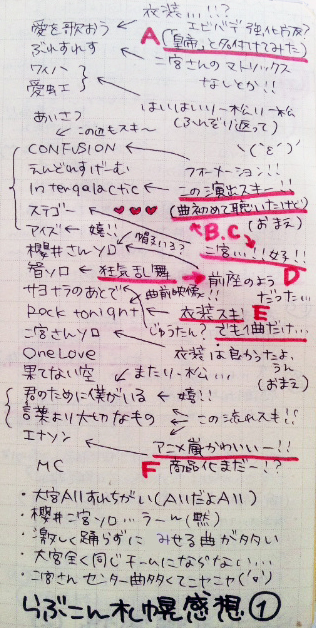 衣装...!!?
愛を歌おう
エビバデ 強化月夜?
A
ぶれすれす
「皇帝」と名付けてみた
ワイハ
二宮さんのマトリックス
なしとか!!
愛蚊工
はいはいいりー松いりー松
(ふんぞり返って)
あいさつ
この辺もスキ〜
CONFUSION
えんどれすげーむ
フォーメーション!!
Intergalactic
この演出スキー!!
ステゴー
♥♥♥
(曲初めて聴いたけど)
アイズ
嬉!!
B.C
(おまえ)
櫻井さんソロ
二宮...!!好!!
智ソロ
狂気乱舞
前座のよう
D
だった...
サヨナラのあとで
曲前映像!!
Rock tonight
衣装スキ!
E
じゅうたん?
でも1曲だけ...
二宮さんソロ
OneLove
衣装は良かったよ、
うん
果てない空
またりー松...
(おまえ)
君のために僕がいる
嬉!!
言葉より大切なもの
この流れスキ!!
エナソン
アニメ嵐かわいいー!!
MC
F
商品化まだー!?
・大宮Allすれちがい(AllだよAll)
・櫻井二宮ソロ...うーん(黙)
・激しく踊らずに みせる曲がタタい
・大宮全く同じチームにならない...
・二宮さん センター曲多くてニヤニヤ
らぶこん札幌感想①